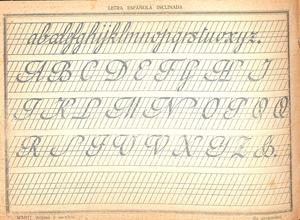 LETRA ESPAÑOLA INCLINADA
abcdefghijklmnopqrstuvxyz.
A B C D E F G H I
J K L M N O P Q Q
R S T U V X Y Z &.